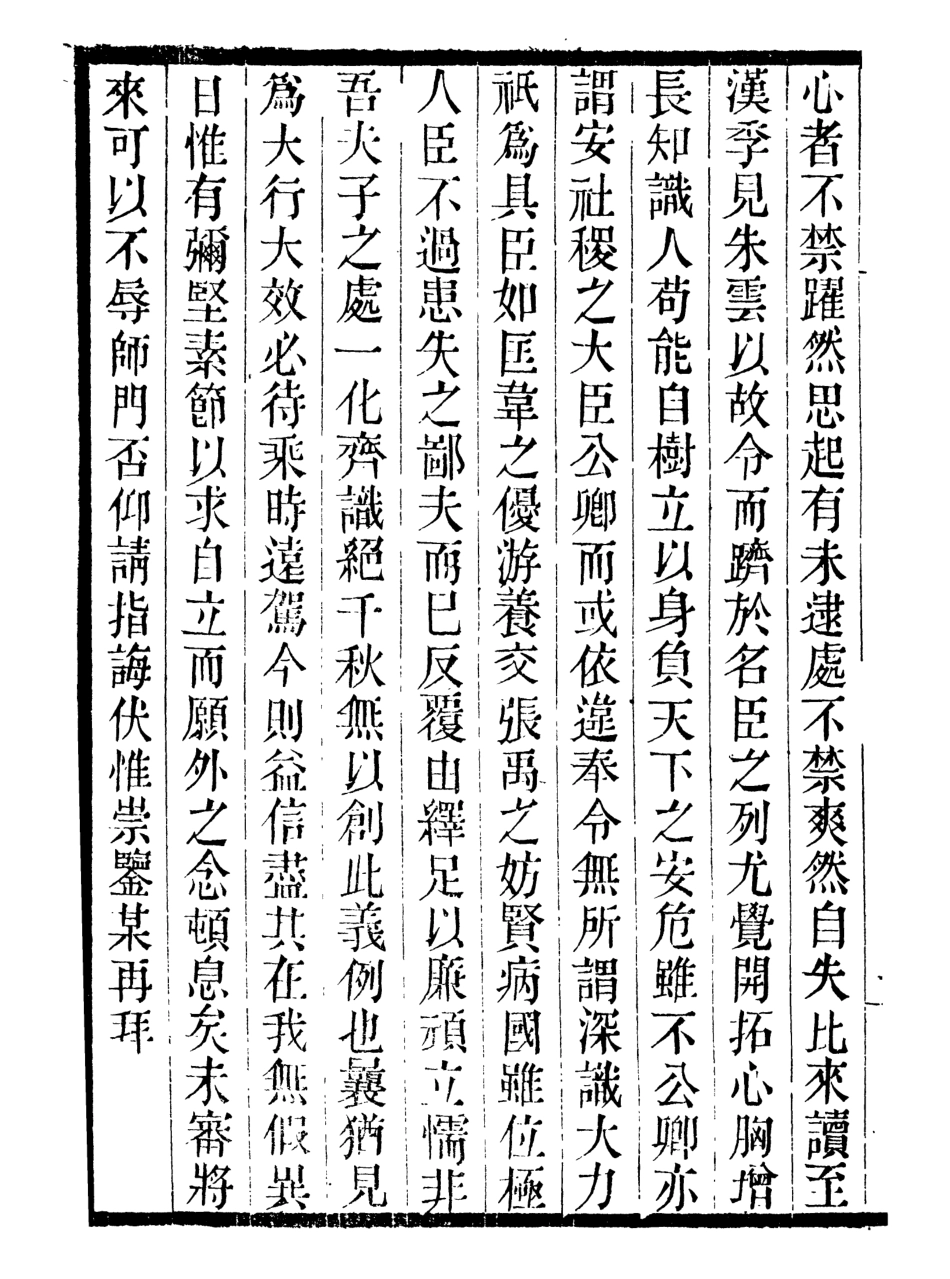 心者不禁躍然思起有未逮處不禁爽然自失比來讀至
漢季見朱雲以故令而躋於名臣之列尤覺開拓心胸增
長知識人苟能自樹立以身負天下之安危雖不公卿亦
謂安社稷之大臣公卿而或依違奉令無所謂深識大力
祇為具臣如匡韋之優游養交張禹之妨賢病國雖位極
人臣不過患失之鄙夫而已反覆由繹足以廉頑立懦非
吾夫子之處一化齊識絕千秋無以創此義例也曩猶見
為大行大效必待乘時遠駕今則益信盡其在我無假異
日惟有彌堅素節以求自立而願外之念頓息矣未審將
來可以不辱師門否仰請指誨伏惟崇鑒某再拜